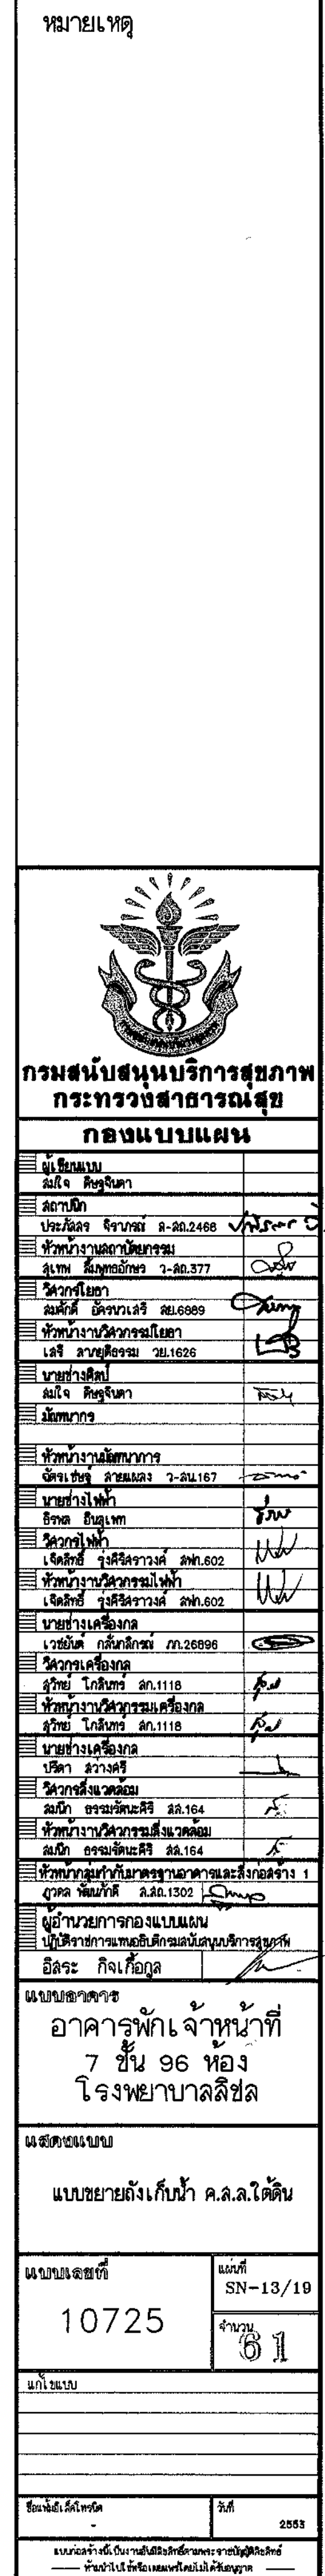 หมายเหตุ
กรมสนับสนุนบริการสุขภาพ
กระทรวงสาธารณสุข
กองแบบแผน
ผู้เขียนแบบ
สมใจ ดิษฐจินดา
สถาปนิก
ประภัสสร จิราภรณ์ ส-สถ.2468
หัวหน้างานสถาปัตยกรรม
สุเทพ ลิ้มพุทธอักษร ว-สถ.377
วิศวกรโยธา
สมศักดิ์ อัครนวเสรี สย.6989
หัวหน้างานวิศวกรรมโยธา
เสรี ลาภยุติธรรม วย.1626
นายช่างศิลป์
สมใจ ดิษฐจินดา
มัณฑนากร
หัวหน้างานมัณฑนาการ
ฉัตรเชษฐ์ สายแผลง ว-สน.167
นายช่างไฟฟ้า
ธิรพล อินสุเทพ
วิศวกรไฟฟ้า
เจิดสิทธิ์ รุ่งศิริศราวงศ์ สฟก.602
หัวหน้างานวิศวกรรมไฟฟ้า
เจิดสิทธิ์ รุ่งศิริศราวงศ์ สฟก.602
นายช่างเครื่องกล
เวชยันต์ กลั่นกสิกรณ์ ภก.26896
วิศวกรเครื่องกล
สุวิทย์ โกสินทร์ สก.1118
หัวหน้างานวิศวกรรมเครื่องกล
สุวิทย์ โกสินทร์ สก.1118
นายช่างเครื่องกล
ปรีดา สว่างศรี
วิศวกรสิ่งแวดล้อม
สมนึก ธรรมรัตนะศิริ สส.164
หัวหน้างานวิศวกรรมสิ่งแวดล้อม
สมนึก ธรรมรัตนะศิริ สส.164
หัวหน้ากลุ่มกำกับมาตรฐานอาคารและสิ่งก่อสร้าง 1
ภูวดล พัฒนภักดี ส.สถ.1302
ผู้อำนวยการกองแบบแผน
ปฏิบัติราชการแทนอธิบดีกรมสนับสนุนบริการสุขภาพ
อิสระ กิจเกื้อกูล
แบบอาคาร
อาคารพักเจ้าหน้าที่
7 ชั้น 96 ห้อง
โรงพยาบาลสิชล
แสดงแบบ
แบบขยายถังเก็บน้ำ ค.ส.ล.ใต้ดิน
แบบเลขที่
10725
แผ่นที่
SN-13/19
จำนวน
61
แก้ไขแบบ
ชื่อแฟ้มอิเล็คโทรนิค
วันที่
2553
แบบก่อสร้างนี้เป็นงานอันมีลิขสิทธิ์ตามพระราชบัญญัติลิขสิทธิ์
ห้ามนำไปใช้หรือเผยแพร่โดยไม่ได้รับอนุญาต